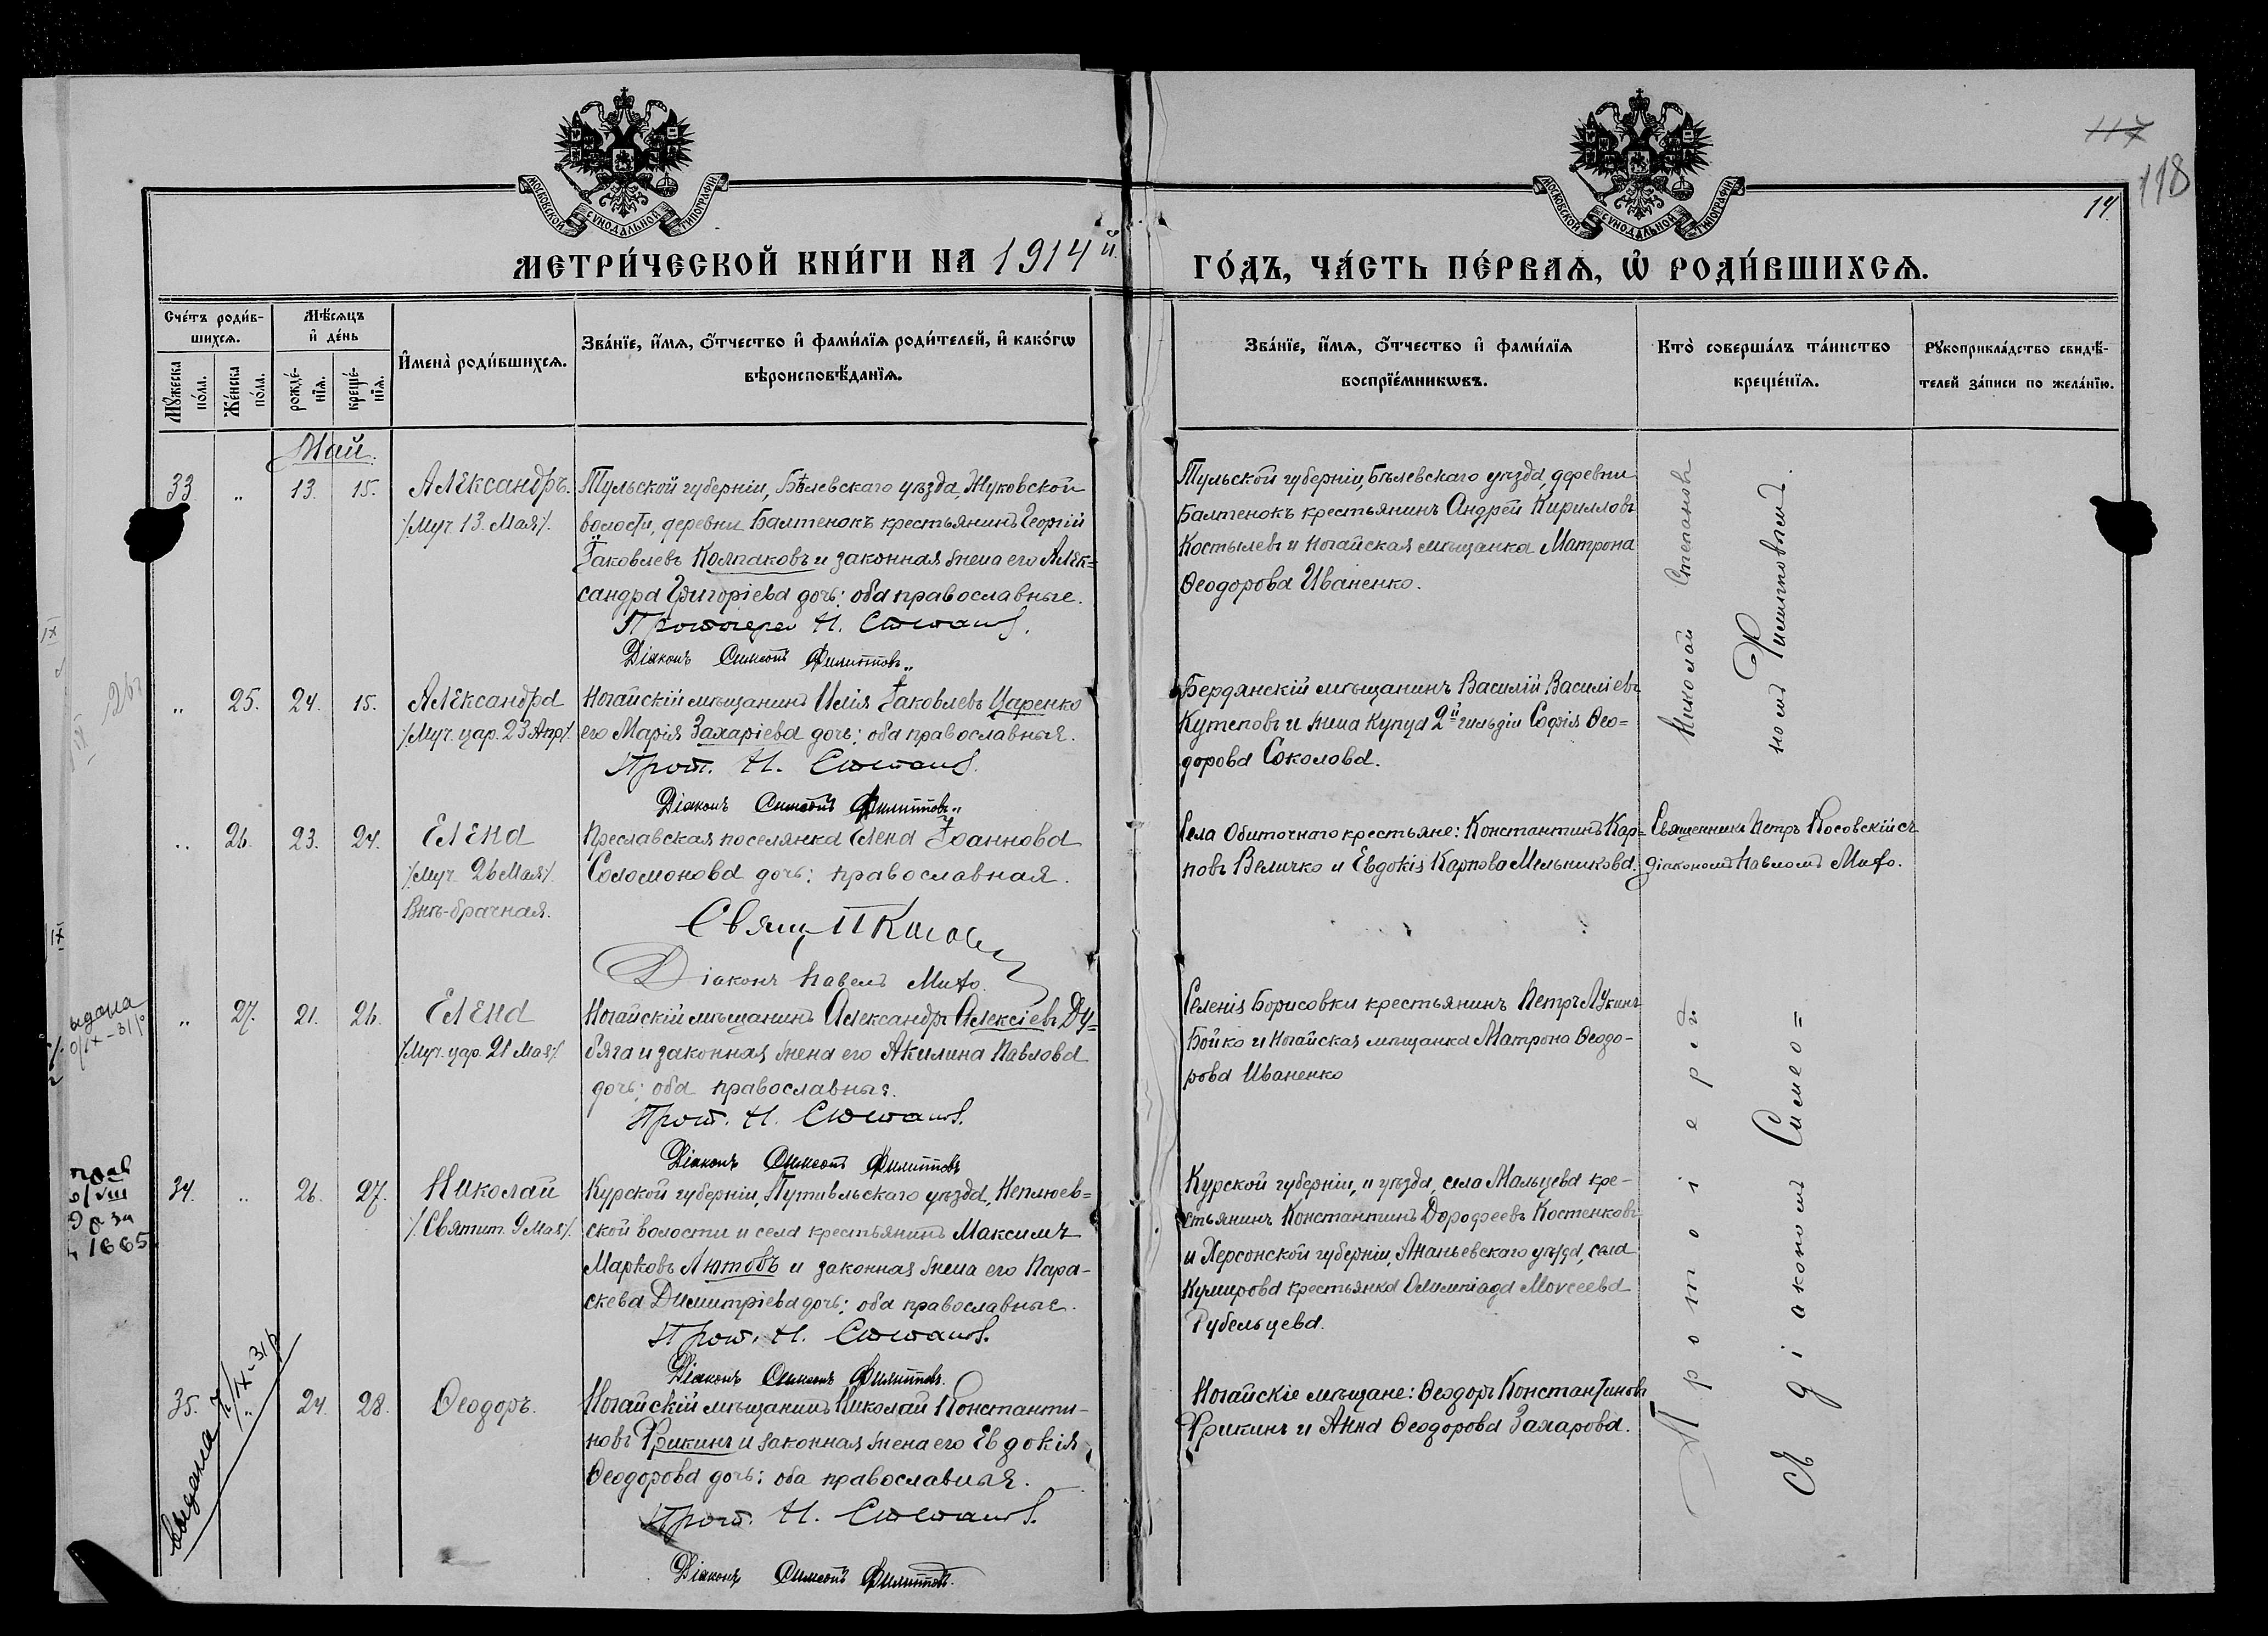 МОСКОВСКОЙ СУНОДАЛЬНОЙ ТИПОГРАФІИ
МОСКОВСКОЙ СУНОДАЛЬНОЙ ТИПОГРАФІИ
117
118
14.
МЕТРИ́ЧЕСКОЙ КНИ́ГИ НА 1914й.
ГО́ДЪ, ЧА́СТЬ ПЕ́РВАѦ, Ѡ҆ РОДИ́ВШИХСѦ.
Сче́тъ роди́в-
шихсѧ.
Мѣ́сѧцъ
и҆ де́нь
Мꙋ́жеска
по́ла.
Же́нска
по́ла.
рожде́-
нїѧ.
креще́-
нїѧ.
И҆мена̀ роди́вшихсѧ.
Зва́нїе, и҆́мѧ, ѻ҆́тчество и҆ фами́лїѧ роди́телей, и҆ како́гѡ
вѣроисповѣ́данїѧ.
Зва́нїе, и҆́мѧ, ѻ҆́тчество и҆ фами́лїѧ
воспрїе́мникѡвъ.
Кто̀ соверша́лъ та́инство
креще́нїѧ.
Рꙋкоприкла́дство свидѣ́-
телей за́писи по жела́нїю.
Май.
33. „ 13. 15. Александръ.
/Муч. 13. Мая/.
Тульской губерніи, Бѣлевскаго уѣзда, Жуковской
волости, деревни Балтенокъ крестьянинъ Георгій
Іаковлевъ Колпаковъ и законная жена его Алек=
сандра Григоріева дочь: оба православные.
Протоіерей Н. Степановъ.
Діаконъ Симеонъ Филипповъ.
Тульской губерніи, Бѣлевскаго уѣзда, деревни
Балтенокъ крестьянинъ Андрей Кирилловъ
Костылевъ и Ногайская мѣщанка Матрона
Ѳеодорова Иваненко.
„ 25. 24. 15. Александра
/Муч. цар. 23 Апр/.
Ногайскій мѣщанинъ Илія Іаковлевъ Царенко
его Марія Захаріева дочь: оба православныя.
Прот. Н. Степановъ.
Діаконъ Симеонъ Филипповъ.
Бердянскій мѣщанинъ Василій Василіевъ
Кутеповъ и жена купца 2й гильдіи Софія Ѳео=
дорова Соколова.
„ 26. 23. 24. Елена
/муч 26 Мая/.
Внѣ-брачная.
Преславская поселянка Елена Іоаннова
Соломонова дочь: православная.
Свящ. П Косов
Діаконъ Павелъ Миѳо.
Села Обиточнаго крестьяне: Константинъ Кар=
повъ Величко и Евдокія Карпова Мельникова.
Священникъ Петръ Косовскій съ
діакономъ Павломъ Миѳо.
„ 27. 21. 26. Елена
/Муч. цар. 21 Мая/.
Ногайскій мѣщанинъ Александръ Алексіевъ Ду=
бяга и законная жена его Акилина Павлова
дочь: оба православныя.
Прот. Н. Степановъ.
Діаконъ Симеонъ Филипповъ
Селенія Борисовки крестьянинъ Петръ Лукинъ
Бойко и Ногайская мѣщанка Матрона Ѳеодо-
рова Иваненко
34. „ 26. 27. Николай
/. Святит. 9 Мая/.
Курской губерніи, Путивльскаго уѣзда, Неплюев=
ской волости и села крестьянинъ Максимъ
Марковъ Лютовъ и законная жена его Пара-
скева Димитріева дочь: оба православные.
Прот. Н. Степановъ.
Діаконъ Симеонъ Филипповъ.
Курской губерніи, и уѣзда, села Мальцева кре-
стьянинъ Константинъ Дорофеевъ Костенковъ
и Херсонской губерніи, Ананьевскаго уѣзда, села
Кумирова крестьянка Олимпіада Моѵсеева
Рубельцева.
35. 24. 28. Ѳеодоръ.
Ногайскій мѣщанинъ Николай Константи-
новъ Фрикинъ и законная жена его Евдокія
Ѳеодорова дочь: оба православныя.
Прот. Н. Степановъ.
Діаконъ Симеонъ Филипповъ.
Ногайскіе мѣщане: Ѳеодоръ Константиновъ
Фрикинъ и Анна Ѳеодорова Захарова.
Протоіерей Николай Степановъ
съ діакономъ Симео=номъ Филипповымъ.
1665
выдана